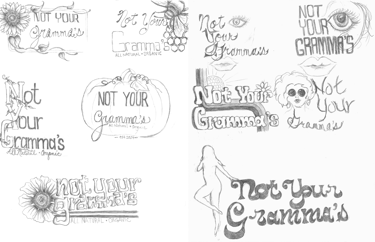 NOT YOUR
Gramma's
Not Your
Gramma's
ALL NATURAL • ORGANIC
Not
Your
Gramma's
NOT
YOUR
GRAMMA'S
Not
Your
Gramma's
All Natural • Organic
NOT YOUR
Gramma's
Not Your
Gramma's
Not
Your
Gramma's
not your
gramma's
ALL NATURAL • ORGANIC
Not Your
Gramma's